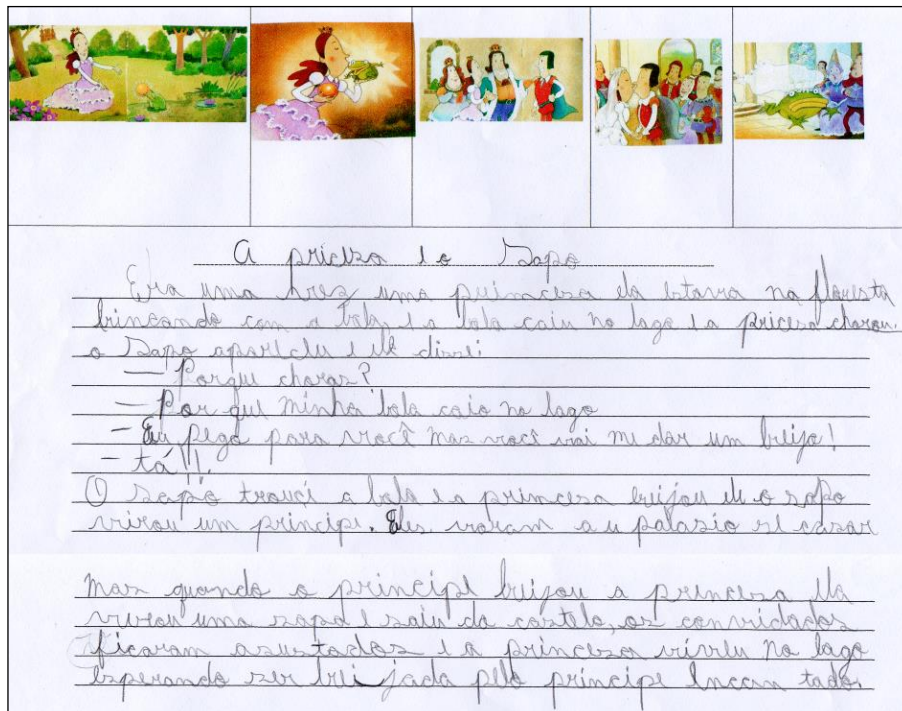 A pricesa e o Sapo
Era uma vez uma princesa ela estava na floresta
brincando com a bola, e a bola caiu no lago e a pricesa chorou.
o Sapo apareceu e ele disse:
— Porque choras?
— Por que minha bola caio no lago
— Eu pego para você mas você vai me dar um beijo!
— tá!!.
O sapo trouce a bola e a princesa beijou ele o sapo
virou um principe. Eles voram a u palasio se casar
mas quando o principe beijou a princesa ela
virou uma sapa e saiu do castelo, os convidados
ficaram asustados e a princesa viveu no lago
esperando ser beijada pelo principe encan tado.